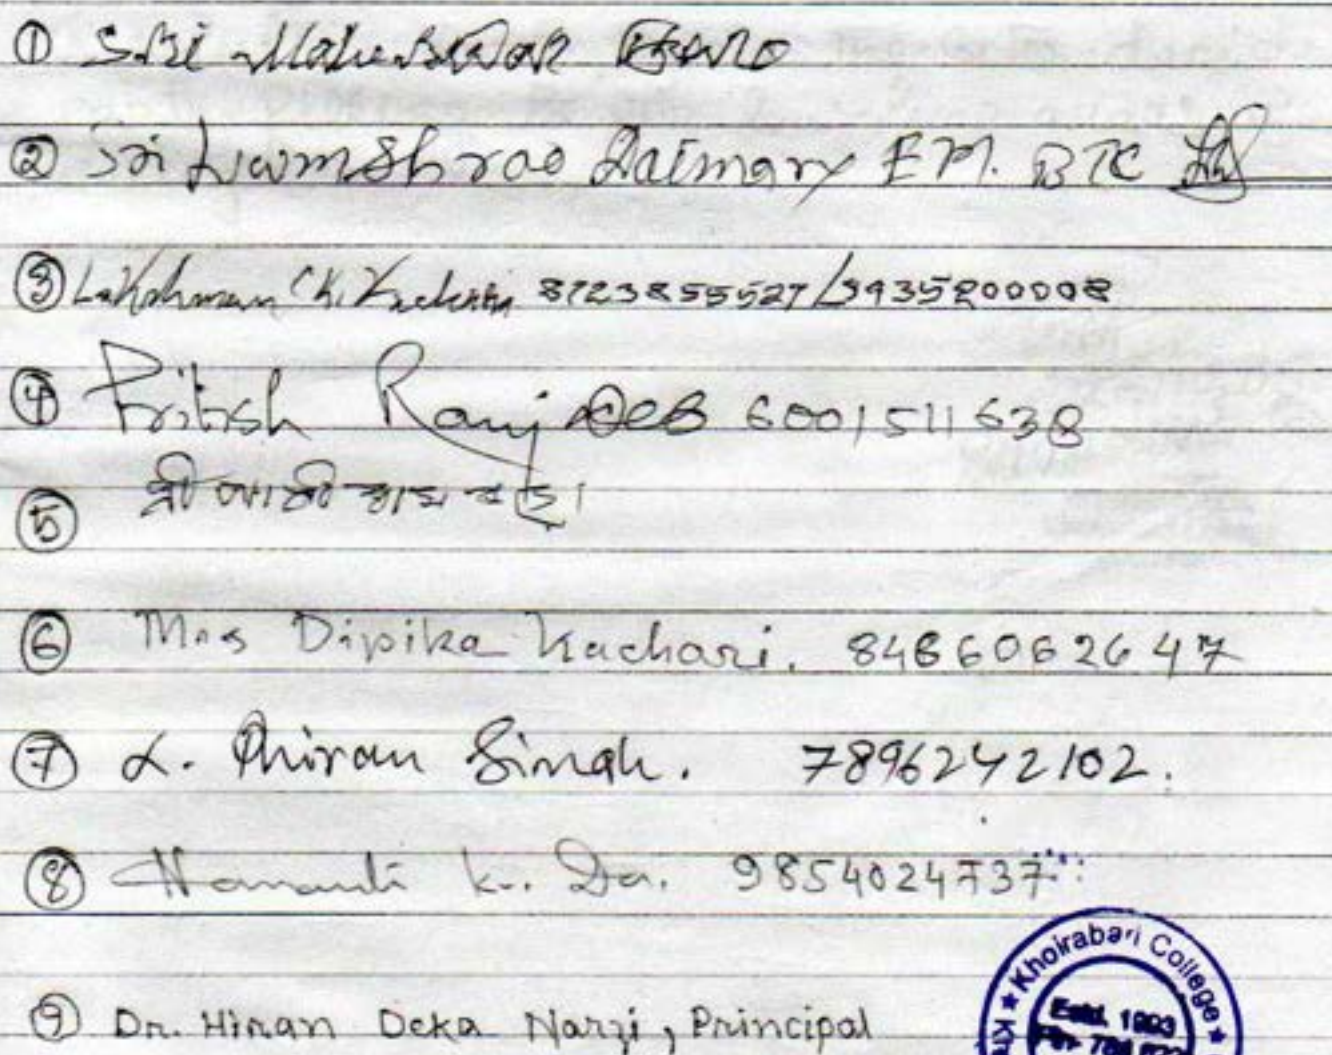 ① Sri Maheswar Boro
② Sri Lwmshrao Daimary EM. BTC
③ Lakshman Ch. 8723855527/9435200008
④ Pritish Ranj Deb 6001511638
⑤ श्री
⑥ Mrs Dipika Kachari. 84866062647
⑦ L. Dhiran Singh. 7896242102.
⑧ Hemanta kr. Da. 9854024737
⑨ Dr. Hiran Deka Narzi, Principal
★ Khoirabari College ★
Estd. 1993
Pin-784